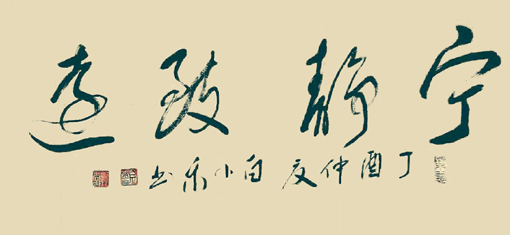 宁静致远
丁酉仲夏白小乐书